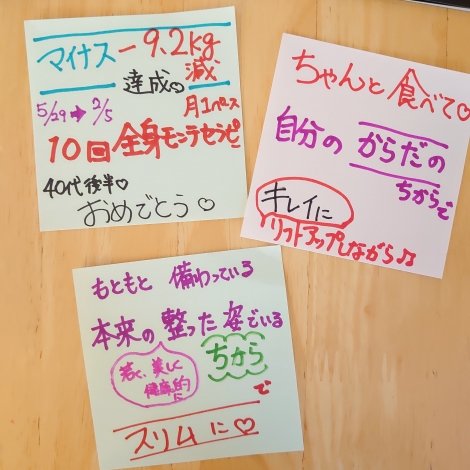 マイナス－9.2kg
減
達成。
5/29➡2/5
月1ペース
10回全身モンテセラピ
40代後半♡
おめでとう♡
ちゃんと食べて♡
自分のからだの
ちからで
キレイに
リフトアップしながら♫
もともと備わっている
本来の整った姿でいる
若く、美しく
健康的に
ちから
で
スリムに♡